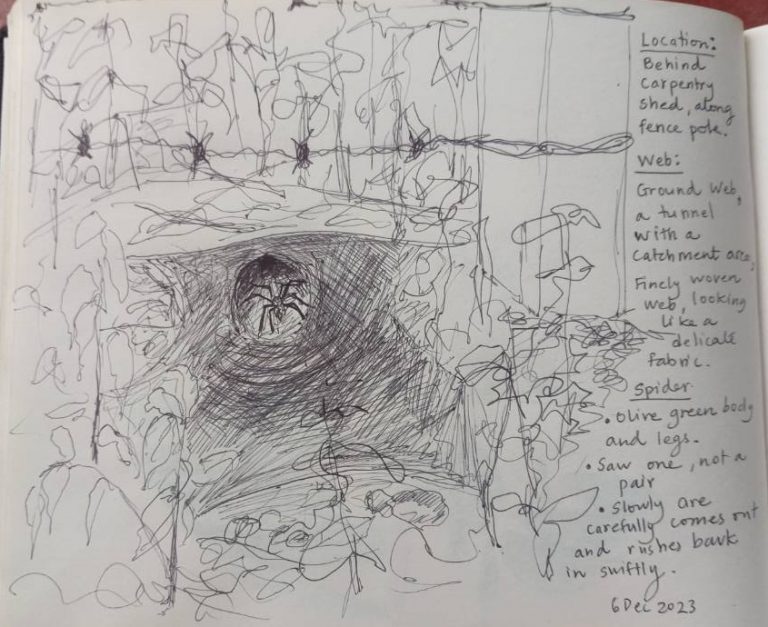 Location:
Behind
Carpentry
shed, along
fence pole.
Web:
Ground Web,
a tunnel
with a
Catchment area,
Finely woven
web, looking
like a
delicate
fabric.
Spider
• Olive green body
and legs.
• Saw one, not a
pair
• Slowly are
carefully comes out
and rushes back
in swiftly.
6 Dec 2023